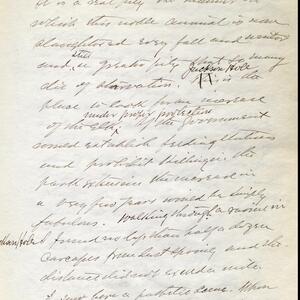 It is a real pity the manner in
which this noble animal is now
slaughtered every fall and winter
and still a greater pity that so many
die of starvation. Jackson Hole is the
place to look for an increase
of the Elk under proper protection. If the Government
would establish feeding stations
and prohibit killing in the
park wherein the increase in
a very few years would be simply
fabulous. Walking through a ravine in
I found no less than half a dozen
carcases from last spring and the
distance did not exceed a mile
It must have a pathetic scene. When